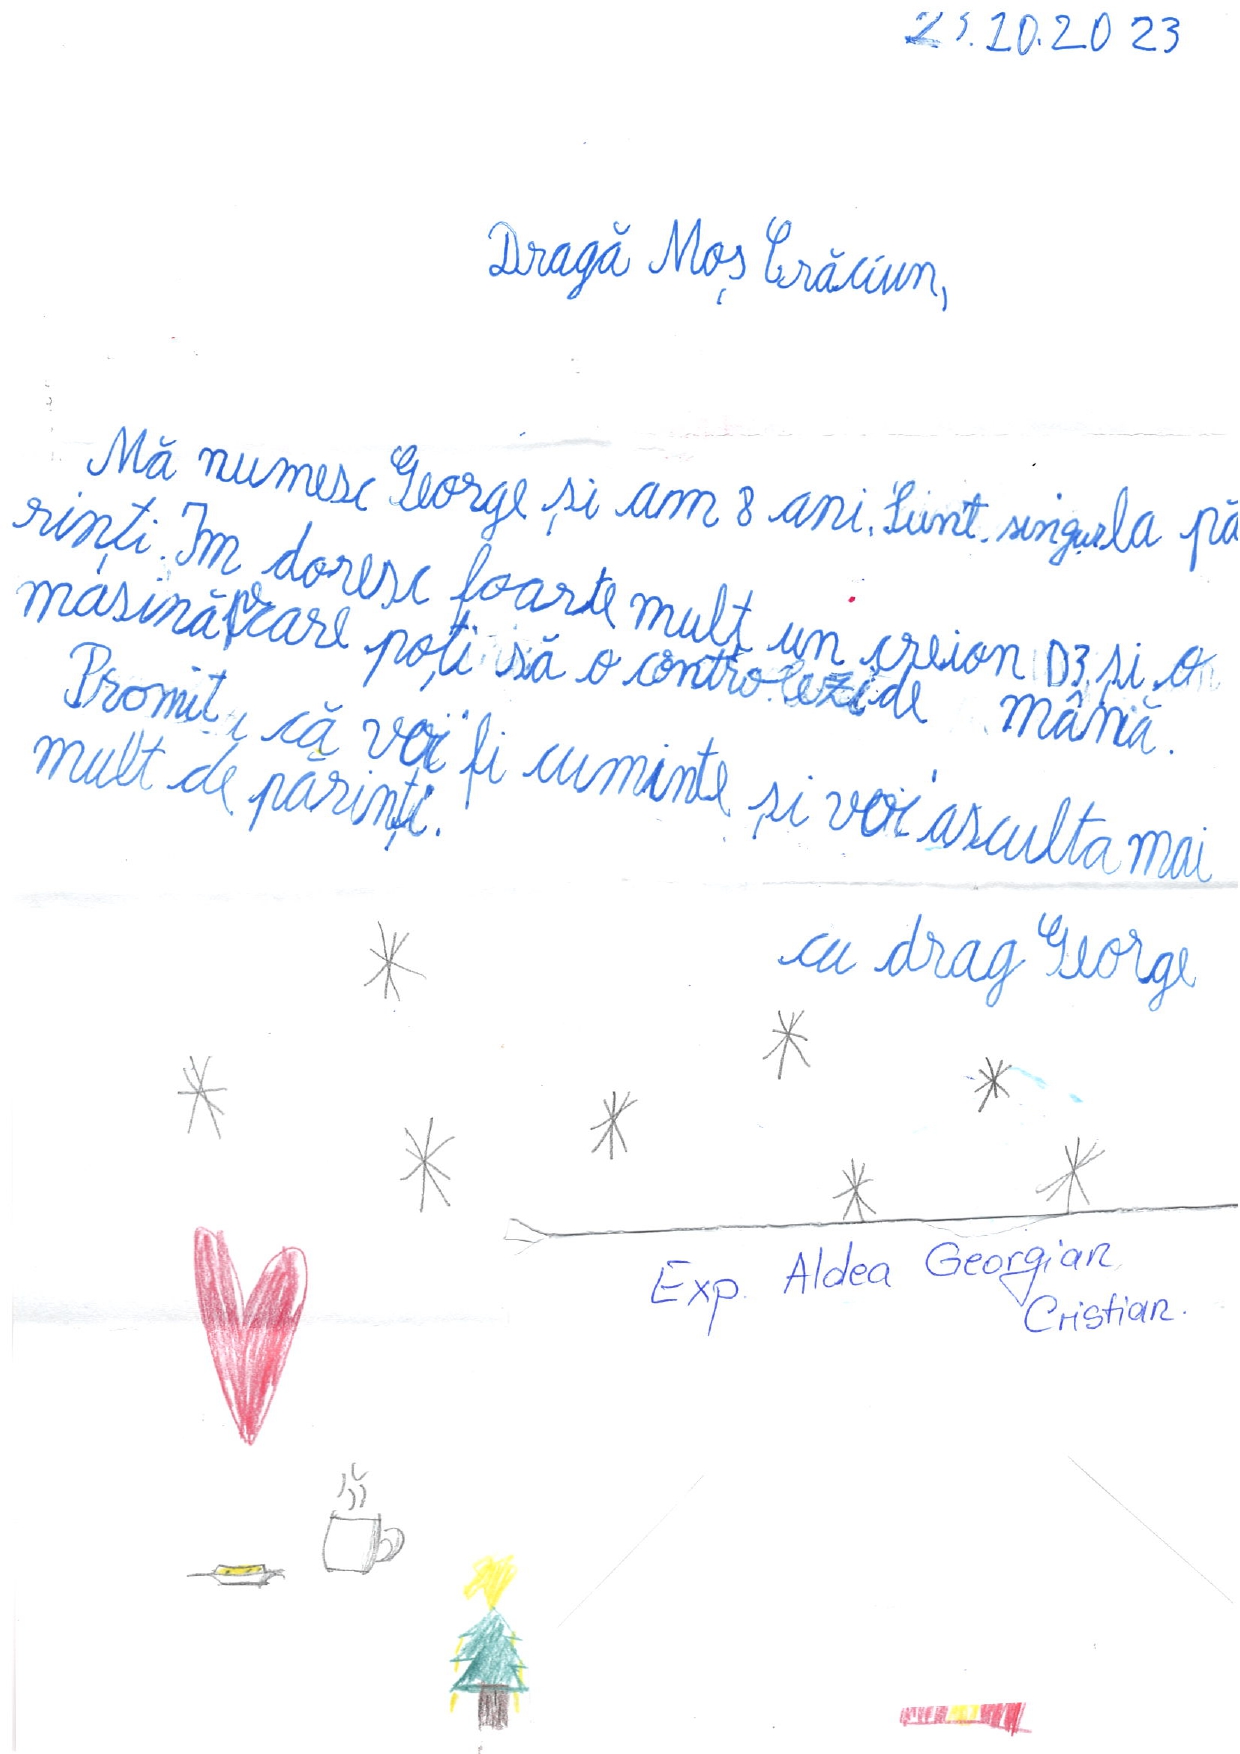 .10.2023
Dragă Moș Crăciun,
Mă numesc George și am 8 ani. Sunt singur la pă
rinți. Îm doresc foarte mult un creion D3 și o
măsină pe care poți să o controlezi de mână.
Promit, că voi fi cuminte și voi asculta mai
mult de părinți.
cu drag George
Exp. Aldea Georgian
Cristian.